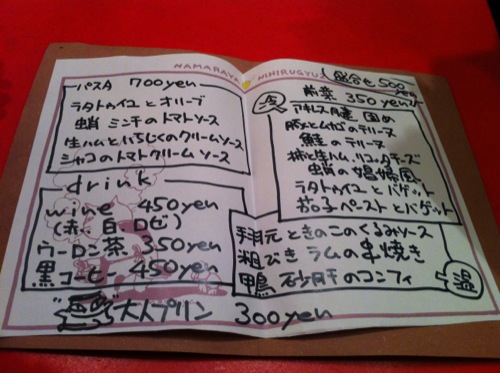 NAMARAYA NIHIRUGYUU
パスタ 700yen
ラタトゥイユとオリーブ
蛸ミンチのトマトソース
生ハムといちじくのクリームソース
シャコのトマトクリームソース
drink
wine 450yen
(赤 白 ロゼ)
ウーロン茶 350yen
黒コーヒー 450yen
大人プリン 300yen
盛合せ 500yen
前菜 350yen
冷
豚メとムカゴのテリーヌ
鮭のテリーヌ
柿と生ハム、リコッタチーズ
蛸の娼婦風
ラタトゥイユとバゲット
茄子ペーストとバゲット
手羽元ときのこのくるみソース
粗びきラムの串焼き
鴨砂肝のコンフィ
温